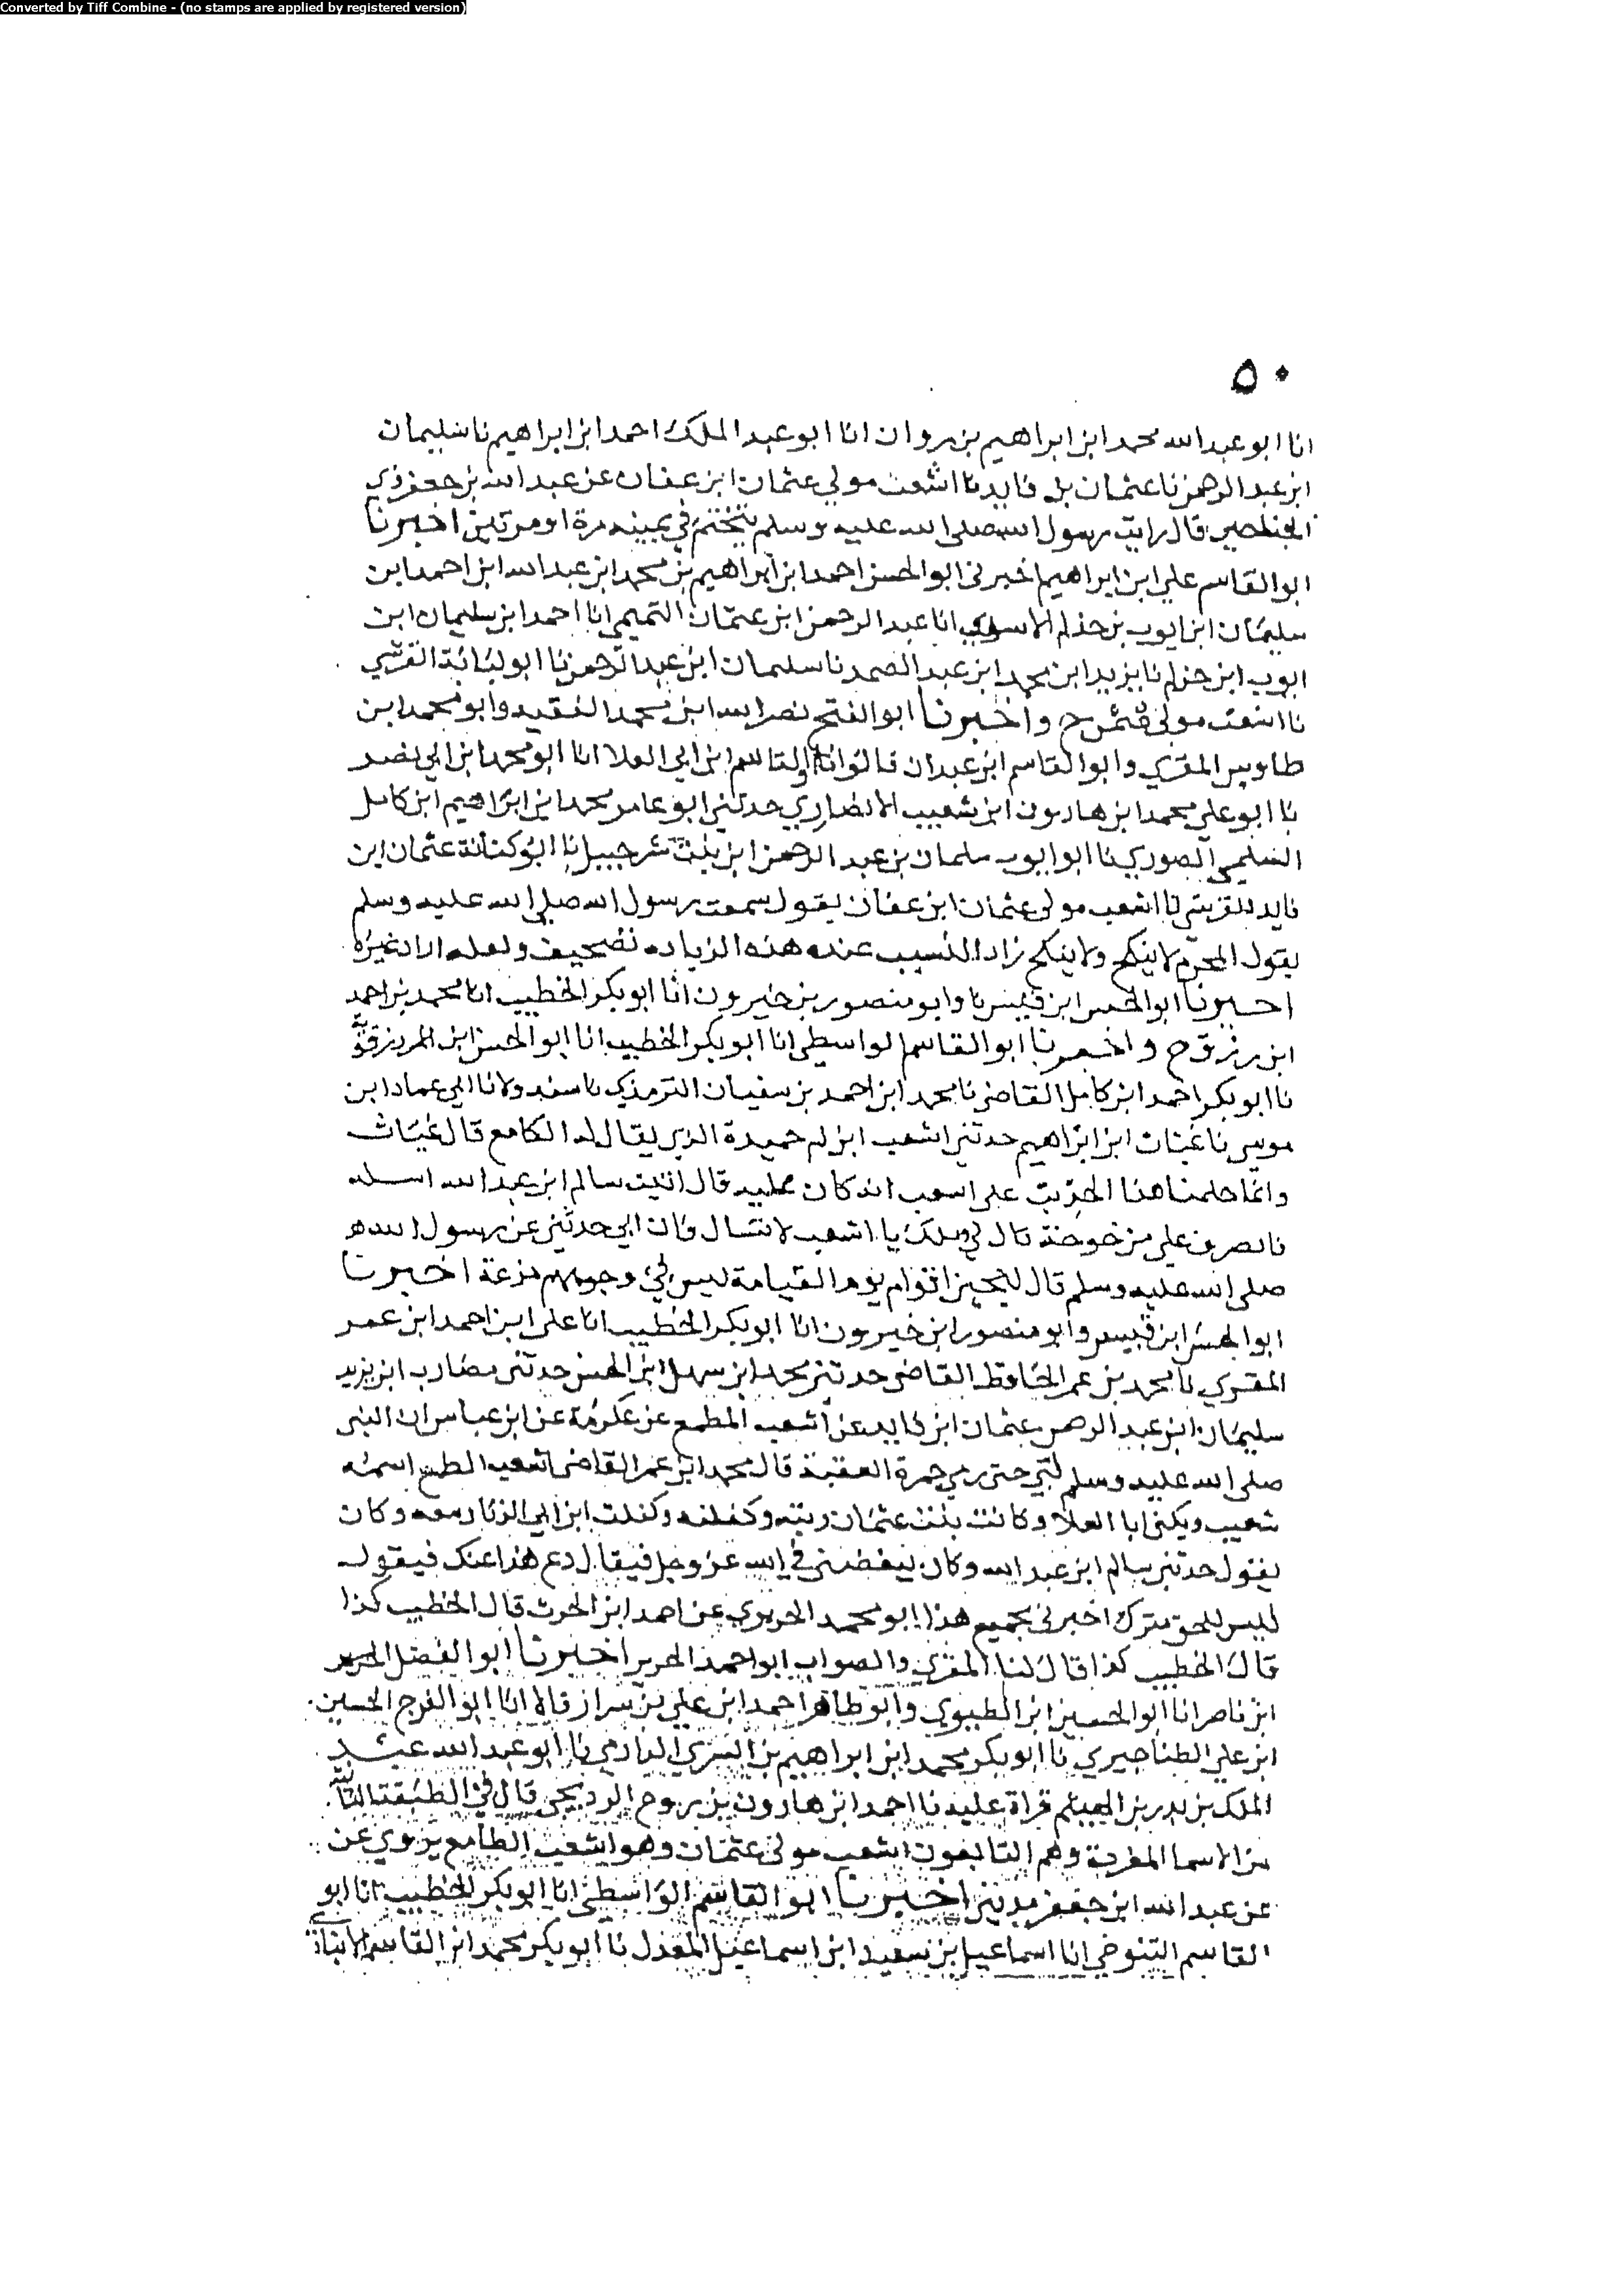 Converted by Tiff Combine - (no stamps are applied by registered version)
٥٠
انا ابو عبد الله محمد ابن ابراهيم بن مروان انا ابو عبد الملك احمد ابن ابراهيم نا سليمان
ابن عبد الرحمن نا عثمان بن فايد نا اشعب مولي عثمان ابن عفان عن عبد الله بن جعفر ذي
الجناحين قال رايت رسول الله صلى الله عليه وسلم يتختم في يمينه مرة او مرتين اخبرنا
ابو القاسم علي ابن ابراهيم اخبرني ابو الحسن احمد ابن ابراهيم بن محمد ابن عبد الله ابن احمد ابن
سليمان ابن ايوب بن حذلم الاسدي انا عبد الرحمن ابن عثمان التميمي انا احمد ابن سليمان ابن
ايوب ابن حزلم نا يزيد ابن محمد ابن عبد الصمد نا سليمان ابن عبد الرحمن نا ابو لبانة القرشي
نا اشعب مولى ح واخبرنا ابو الفتح نصر الله ابن محمد الفقيه وابو محمد ابن
طاوس المقري وابو القاسم ابن عبدان قالوا انا ابو القاسم ابن ابي العلا انا ابو محمد ابن ابي نصر
نا ابو علي محمد ابن هارون ابن شعيب الانصاري حدثني ابو عامر محمد ابن ابراهيم ابن كامل
السليمي الصوري نا ابو ايوب سلمان بن عبد الرحمن ابن بنت شرحبيل نا ابو كنانة عثمان ابن
فايد القرشي نا اشعب مولى عثمان ابن عفان يقول سمعت رسول الله صلى الله عليه وسلم
يقول المحرم لا ينكح ولا ينكح زاد النسيب عنده هذه الزياده تصحيف ولعله اراد غيره
اخبرنا ابو الحسن ابن قبيس نا وابو منصور بن خيرون انا ابو بكر الخطيب انا محمد بن احمد
ابن رزق ح واخبرنا ابو القاسم الواسطي انا ابو بكر الخطيب انا ابو الحسن ابن
نا ابو بكر احمد ابن كامل القاضي نا محمد ابن احمد بن سفيان الترمذي نا عباد ابن
موسى نا غياث ابن ابراهيم حدثني اشعب ابن ام حميدة الذي يقال له الطامع قال غياث
وانما حملنا هذا الحديث على اشعب انه كان عليه قال اتيت سالم ابن عبد الله اسله
فاشرف علي من خوخة قال لي ويلك يا اشعب لا تسال فان ابي حدثني عن رسول الله
صلى الله عليه وسلم قال ليجيئن اقوام يوم القيامة ليس في وجوههم مزعة اخبرنا
ابو الحسن ابن قبيس وابو منصور ابن خيرون انا ابو بكر الخطيب انا علي ابن احمد ابن عمر
المقري نا محمد بن عمر الحافظ القاضي حدثني محمد ابن سهل ابن الحسن حدثني مضارب ابن يزيد
سليمان ابن عبد الرحمن عثمان ابن فايد عن اشعب المطمع عن عكرمة عن ابن عباس ان النبي
صلى الله عليه وسلم لبى حتى رمي جمرة العقبة قال محمد ابن عمر القاضي اشعب الطمع اسمه
شعيب ويكنى ابا العلا وكانت بنت عثمان ربته وكفلته وكفلت ابن ابي الزناد معه وكان
يقول حدثني سالم ابن عبد الله وكان يبغضني في الله عز وجل فيقال دع هذا عنك فيقول
ليس للحق مترك اخبرني بجميع هذا ابو محمد الجريري عن احمد ابن الحرث قال الخطيب كذا
قال الخطيب كذا قال لنا المقري والصواب ابو احمد الحرير اخبرنا ابو الفضل
ابن ناصر انا ابو الحسين ابن الطيوري وابو طاهر احمد ابن علي بن سرار قالا انا ابو الفرج الحسين
ابن علي الطناجيري نا ابو بكر محمد ابن ابراهيم بن السري الدارمي نا ابو عبد الله عبد
الملك بن بدر بن الهيثم قراة عليه نا احمد ابن هارون بن روح البرديجي قال في الطبقة الثانية
من الاسما المفردة وهم التابعون اشعب مولى عثمان وهو اشعب الطامع يروي عن
عن عبد الله ابن جعفر مديني اخبرنا ابو القاسم الواسطي انا ابو بكر الخطيب انا ابو
القاسم التنوخي انا اسماعيل ابن سعيد ابن اسماعيل المعدل نا ابو بكر محمد ابن القاسم الانباري